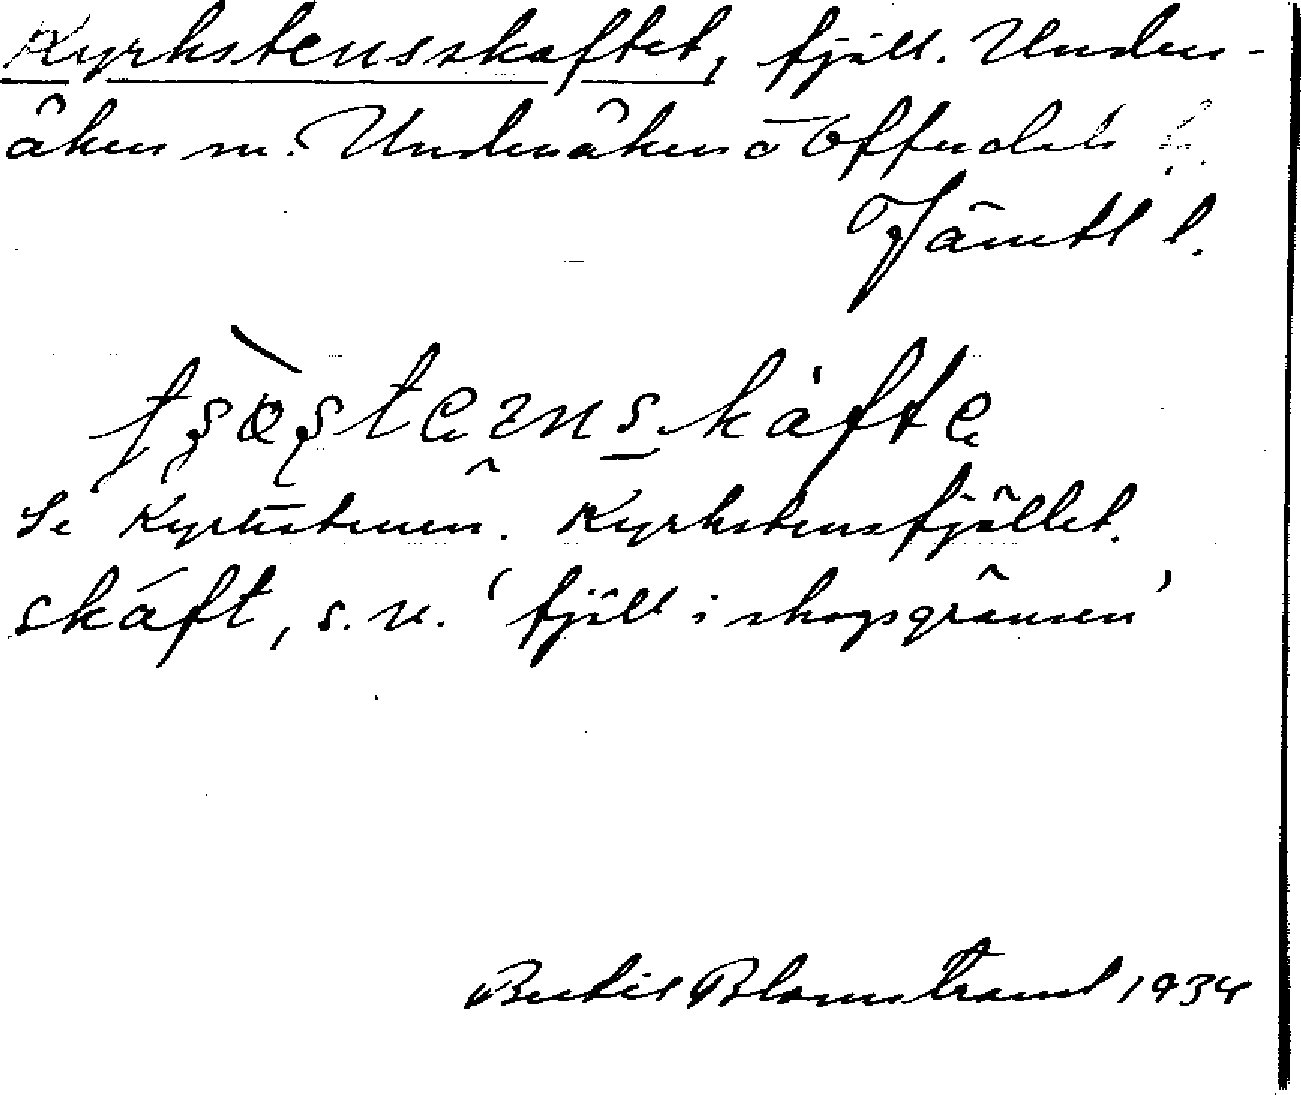 Kyrkstensskaftet, fjäll. Unders-
åkers sn. Undersåkers o Offerdals
Jämtl l.
Se Kyrkstenen. Kyrkstensfjället.
skaft, s. n. 'fjäll i skogsgränsen'
Bertil Blomstrand 1934